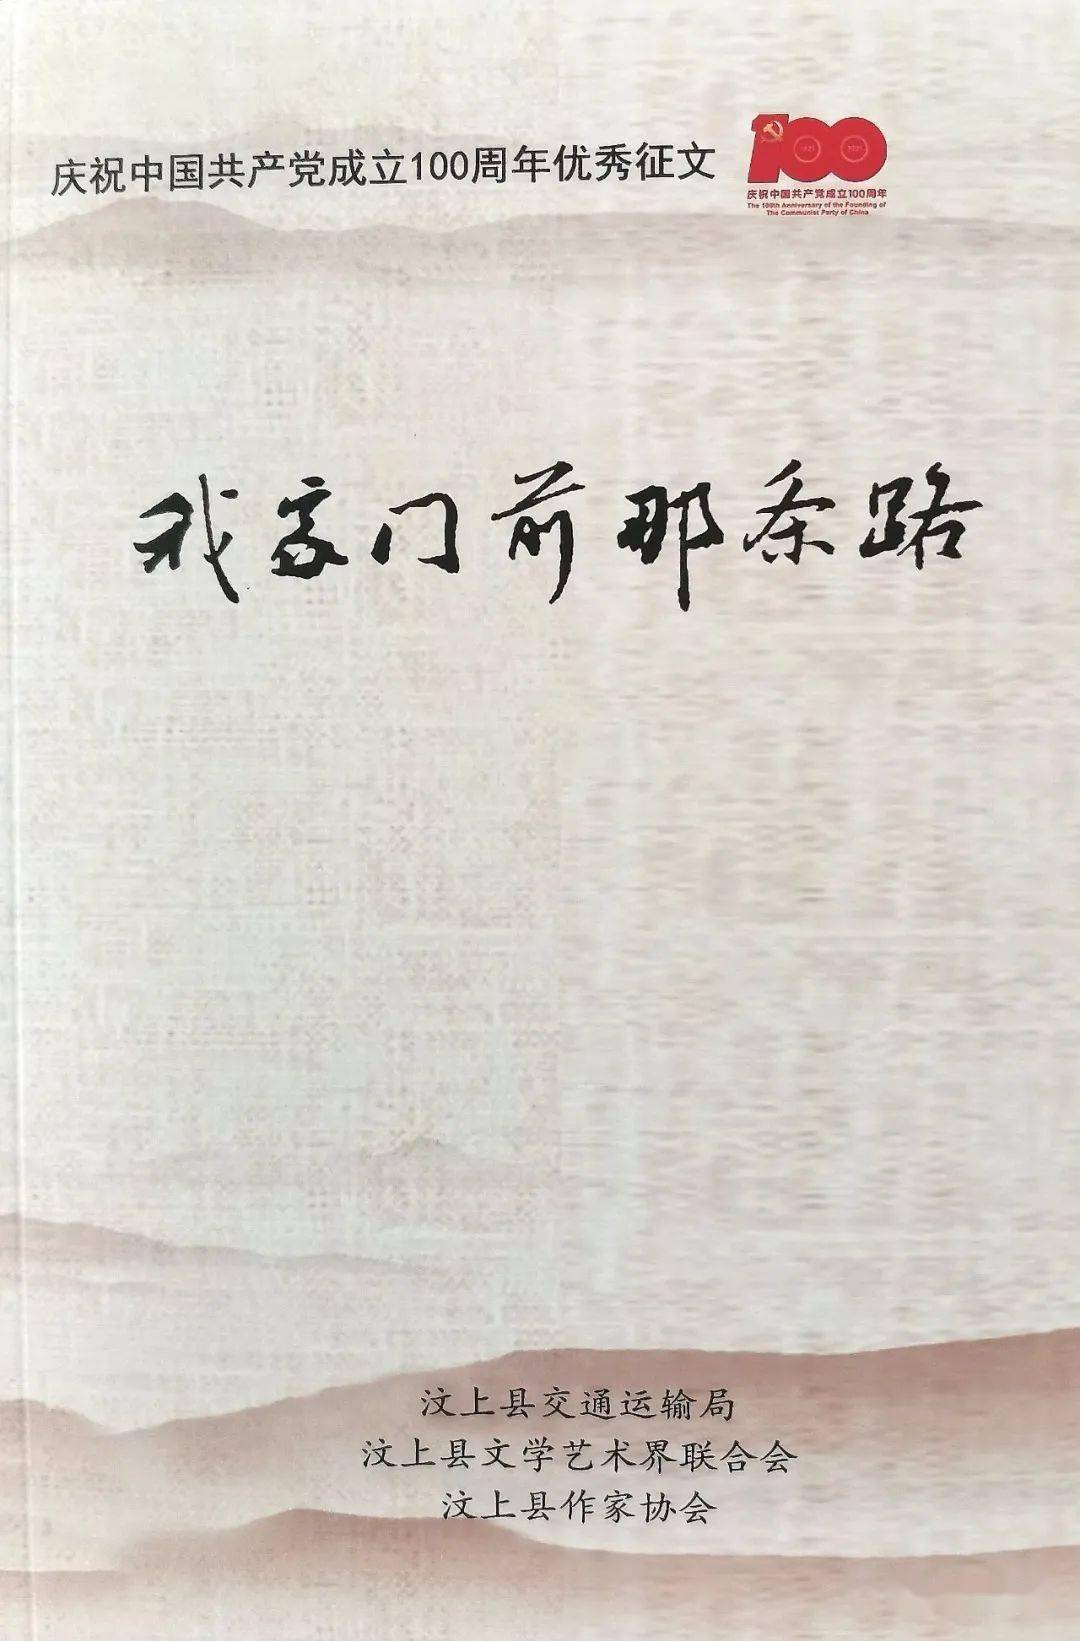 庆祝中国共产党成立100周年优秀征文
100
庆祝中国共产党成立100周年
The 100th Anniversary of the Founding of
The Communist Party of China
我家门前那条路
汶上县交通运输局
汶上县文学艺术界联合会
汶上县作家协会